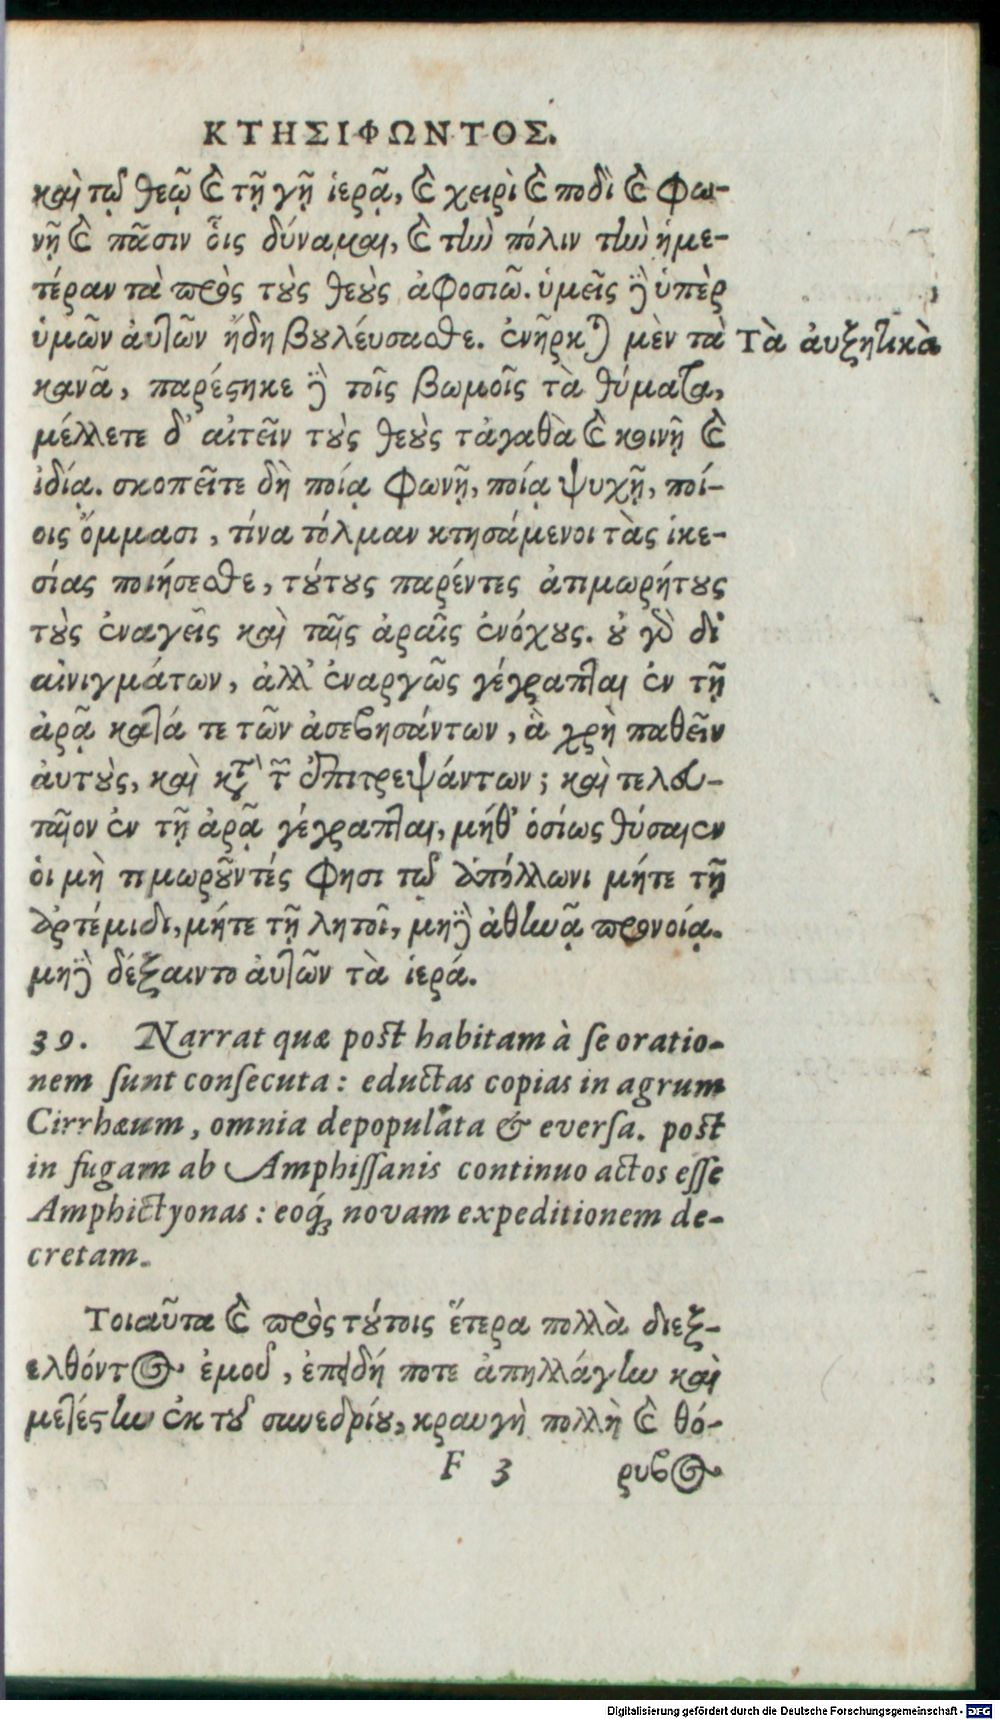 ΚΤΗΣΙΦΩΝΤΟΣ.
καὶ τῷ θεῷ καὶ τῇ γῇ ἱερᾷ, καὶ χειρὶ καὶ ποδὶ καὶ φω-
νῇ καὶ πᾶσιν οἷς δύναμαι, καὶ τὴν πόλιν τὴν ἡμε-
τέραν τὰ πρὸς τοὺς θεοὺς ἀφοσιῶ. ὑμεῖς δὲ ὑπὲρ
ὑμῶν αὐτῶν ἤδη βουλεύσασθε. ἐνῆρκται μὲν τὰ
Τὰ αὐξητικὰ
κανᾶ, παρέστηκε δὲ τοῖς βωμοῖς τὰ θύματα,
μέλλετε δ' αἰτεῖν τοὺς θεοὺς τἀγαθὰ καὶ κοινῇ καὶ
ἰδίᾳ. σκοπεῖτε δὴ ποίᾳ φωνῇ, ποίᾳ ψυχῇ, ποί-
οις ὄμμασι, τίνα τόλμαν κτησάμενοι τὰς ἱκε-
σίας ποιήσεσθε, τούτους παρέντες ἀτιμωρήτους
τοὺς ἐναγεῖς καὶ ταῖς ἀραῖς ἐνόχους. οὐ γὰρ δι'
αἰνιγμάτων, ἀλλ' ἐναργῶς γέγραπται ἐν τῇ
ἀρᾷ κατά τε τῶν ἀσεβησάντων, ἃ χρὴ παθεῖν
αὐτοὺς, καὶ κατὰ τῶν ἐπιτρεψάντων; καὶ τελευ-
ταῖον ἐν τῇ ἀρᾷ γέγραπται, μήθ' ὁσίως θύσαιεν
οἱ μὴ τιμωροῦντές φησι τῷ Ἀπόλλωνι μήτε τῇ
Ἀρτέμιδι, μήτε τῇ λητοῖ, μηδὲ ἀθηνᾷ προνοίᾳ.
μηδὲ δέξαιντο αὐτῶν τὰ ἱερά.
39. Narrat quæ post habitam à se oratio-
nem sunt consecuta: eductas copias in agrum
Cirrhæum, omnia depopulata & eversa. post
in fugam ab Amphissanis continuo actos esse
Amphictyonas: eoq́; novam expeditionem de-
cretam.
Τοιαῦτα καὶ πρὸς τούτοις ἕτερα πολλὰ διεξ-
ελθόντος ἐμοῦ, ἐπειδή ποτε ἀπηλλάγην καὶ
μετέστην ἐκ τοῦ συνεδρίου, κραυγὴ πολλὴ καὶ θό-
F 3 ρυβος
Digitalisierung gefördert durch die Deutsche Forschungsgemeinschaft - DFG